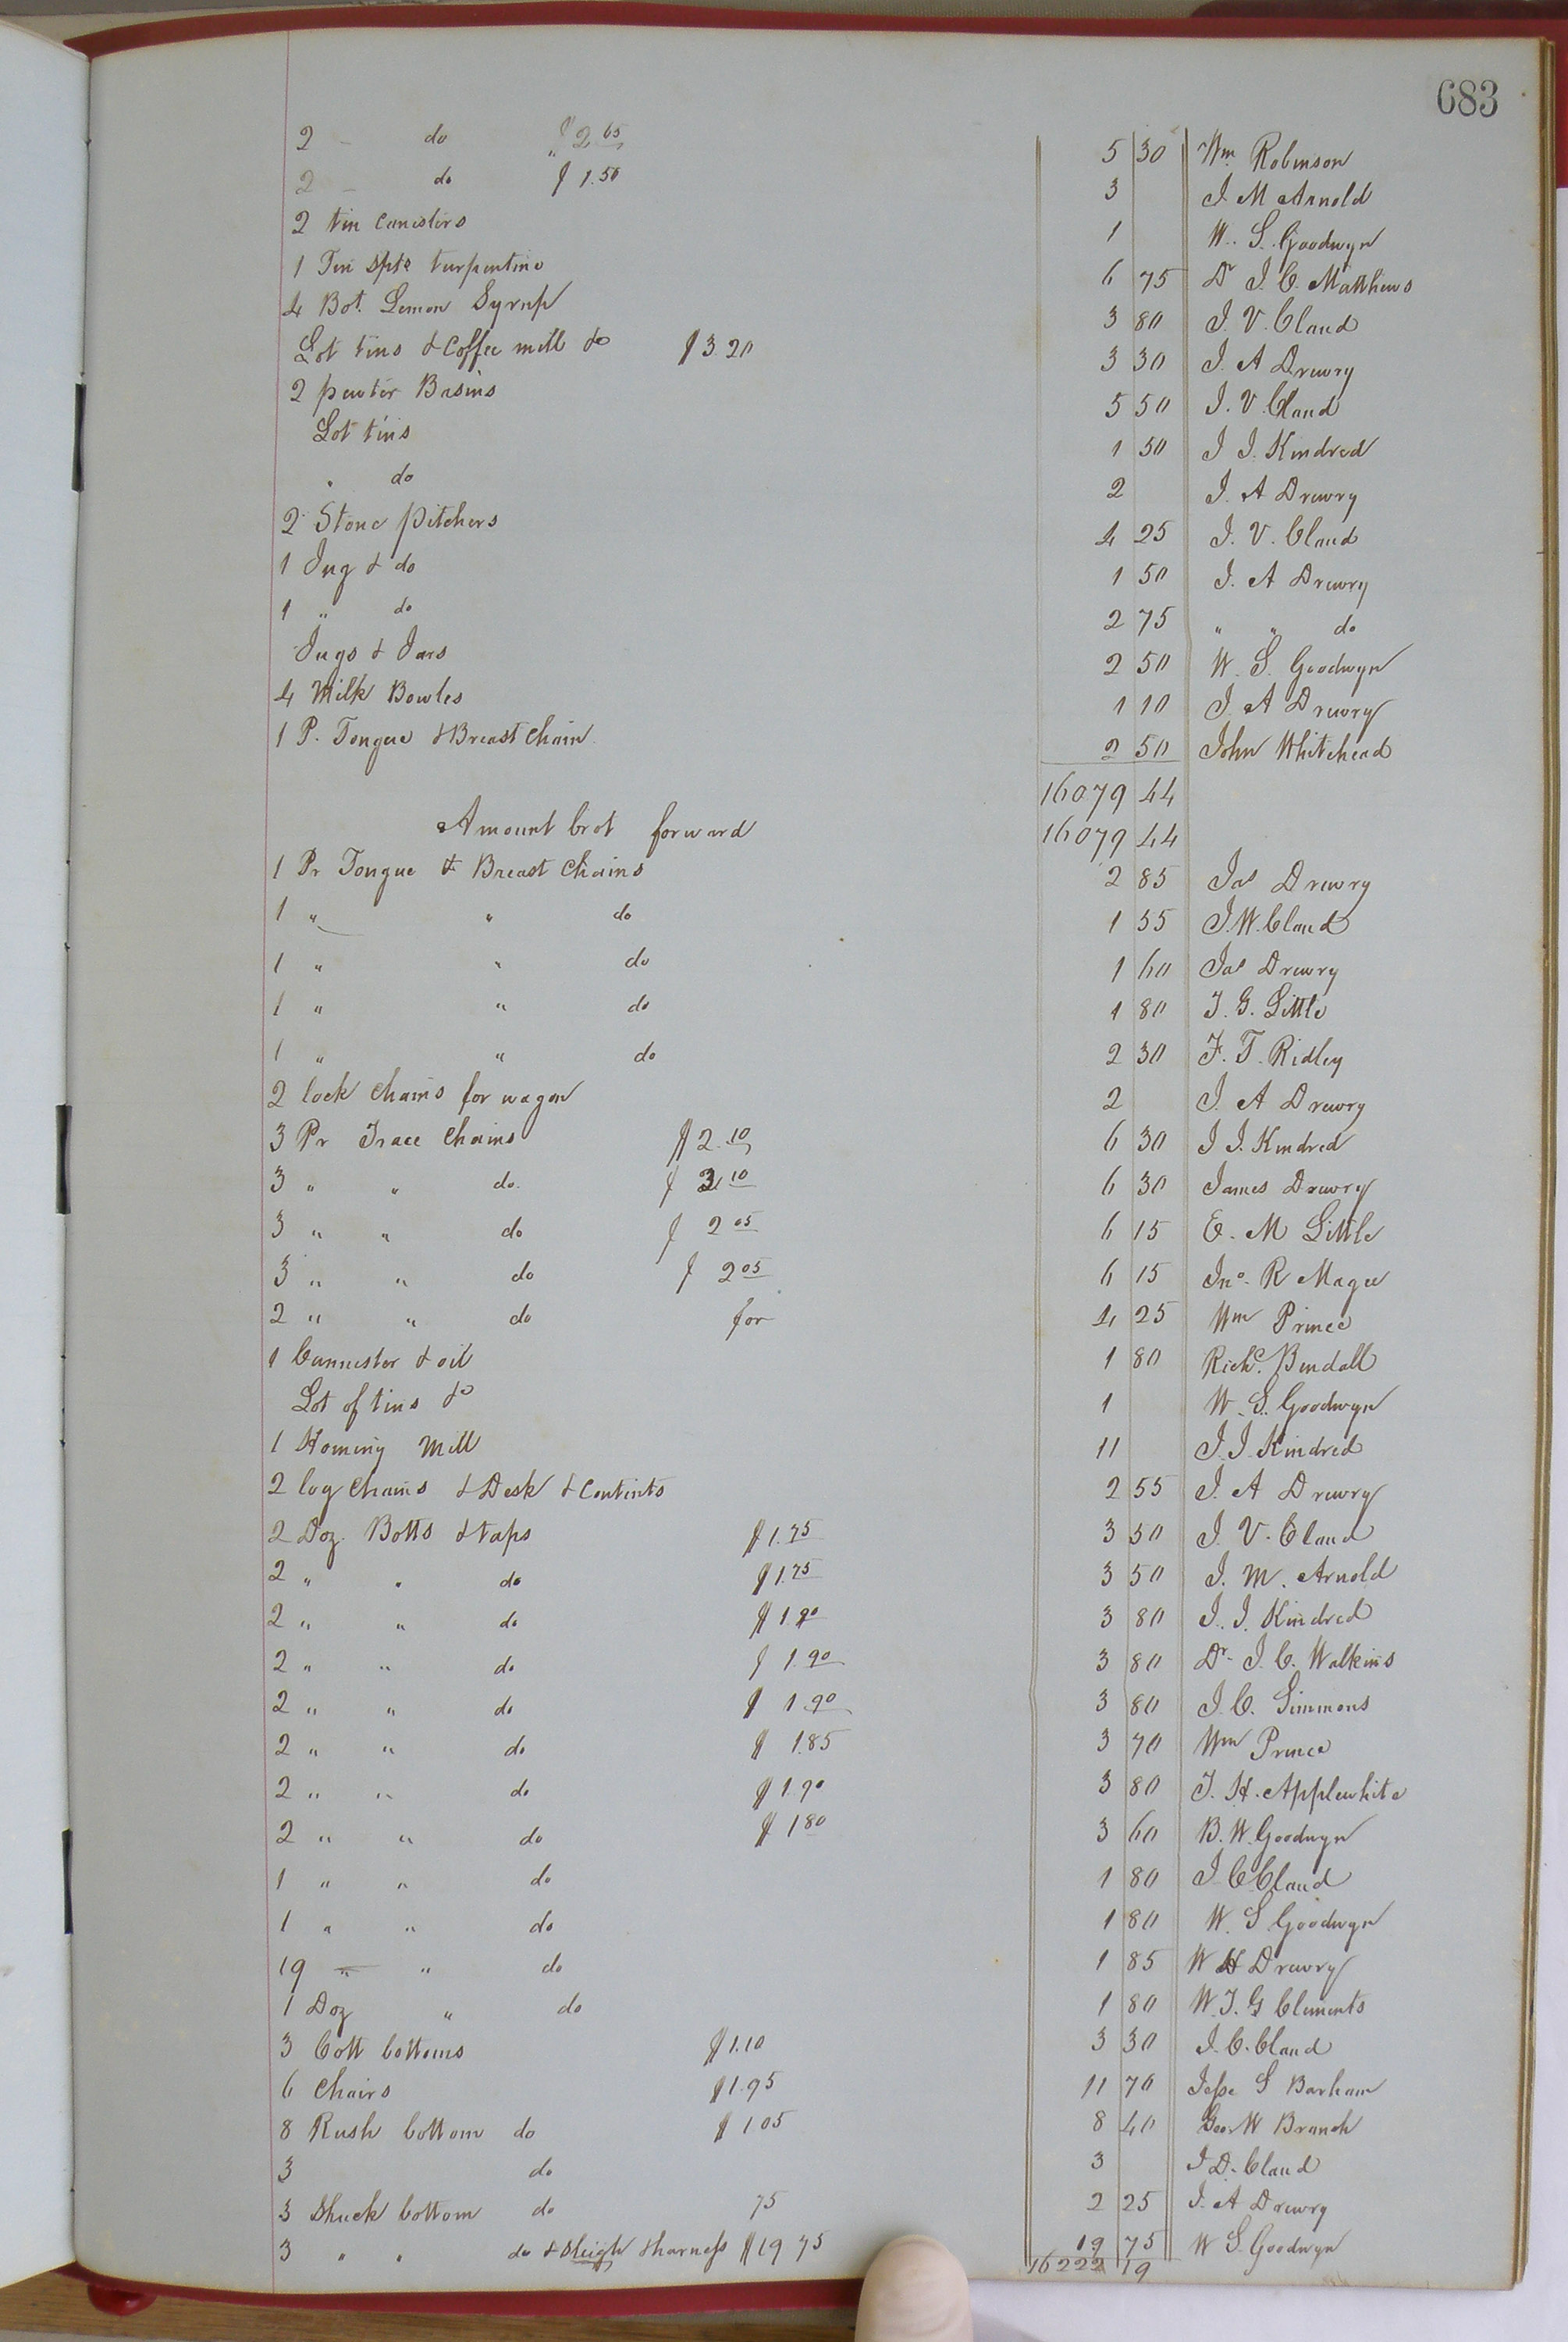 683
2 - do $2.65 5 30 Wm Robinson
2 - do $1.50 3 J. M Arnold
2 tin Canisters 1 W. S. Goodwyn
1 Tin Spts turpentine 6 75 Dr J. C. Matthews
4 Bot. Lemon Syrup 3 80 J. V. Claud
Lot tins & Coffee mill &c $3.20 3 30 J. A Drewry
2 pewter Basins 5 50 J. V. Claud
Lot tins 1 50 J J. Kindred
" do 2 J. A Drewry
2 Stone pitchers 4 25 J. V. Claud
1 Jug & do 1 50 J. A Drewry
1 " do 2 75 " " do
Jugs & Jars 2 50 W. S. Goodwyn
4 Milk Bowles 1 10 J. A Drewry
1 P. Tongue & Breast Chain 2 50 John Whitehead
16079 44
Amount brot forward 16079 44
1 Pr Tongue & Breast Chains 2 85 Jas Drewry
1 " " do 1 55 J. W. Claud
1 " " do 1 60 Jas Drewry
1 " " do 1 80 J. G. Little
1 " " do 2 30 F. T. Ridley
2 lock Chains for wagon 2 J. A Drewry
3 Pr Trace Chains $2.10 6 30 J J. Kindred
3 " " do. $ 2 10 6 30 James Drewry
3 " " do $ 2 05 6 15 E. M Little
3 " " do $ 2 05 6 15 Jno. R Magee
2 " " do for 4 25 Wm Prince
1 Cannister & oil 1 80 Richd. Bendall
Lot of tins &c 1 W. S. Goodwyn
1 Hominy Mill 11 J. J. Kindred
2 log Chains & Desk & Contints 2 55 J. A Drewry
2 Doz. Botts & taps $1.75 3 50 J. V. Claud
2 " " do $1.75 3 50 J. M. Arnold
2 " " do $1.90 3 80 J. J. Kindred
2 " " do $ 1.90 3 80 Dr. J. C. Watkins
2 " " do $ 1.90 3 80 J. C. Simmons
2 " " do $ 1.85 3 70 Wm Prince
2 " " do $1.90 3 80 T. H. Applewhite
2 " " do $ 1 80 3 60 B. W. Goodwyn
1 " " do 1 80 J C Claud
1 " " do 1 80 W. S Goodwyn
19 " " do 1 85 W H Drewry
1 Doz " do 1 80 W. J. G Clements
3 Cott bottoms $1.10 3 30 J. C. Claud
6 Chairs $1.95 11 70 Jesse S Barham
8 Rush bottom do $ 1 05 8 40 Geo W Branch
3 do 3 J D. Claud
3 Shuck bottom do 75 2 25 J. A Drewry
3 " " do & Sleigh & harness $19 75 19 75 W S. Goodwyn
16222 19